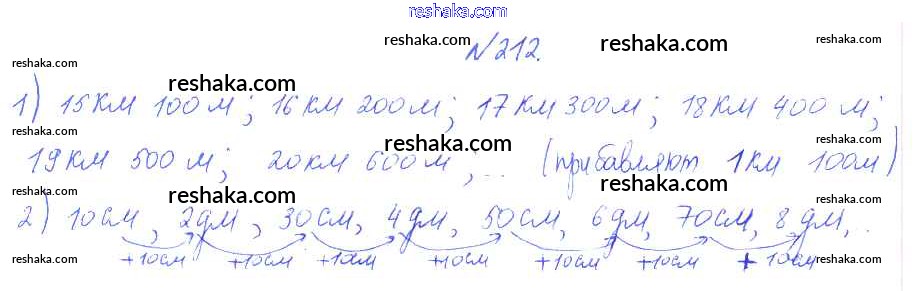 reshaka.com
reshaka.com №212. reshaka.com reshaka.com
reshaka.com reshaka.com
1) 15 км 100 м; 16 км 200 м; 17 км 300 м; 18 км 400 м;
reshaka.com reshaka.com reshaka.com
19 км 500 м; 20 км 600 м; ... (прибавляют 1 км 100 м)
reshaka.com reshaka.com reshaka.com
2) 10 см, 2 дм, 30 см, 4 дм, 50 см, 6 дм, 70 см, 8 дм, ..
reshaka.com +10см +10см +10см +10см +10см +10см +10см reshaka.com
reshaka.com reshaka.com